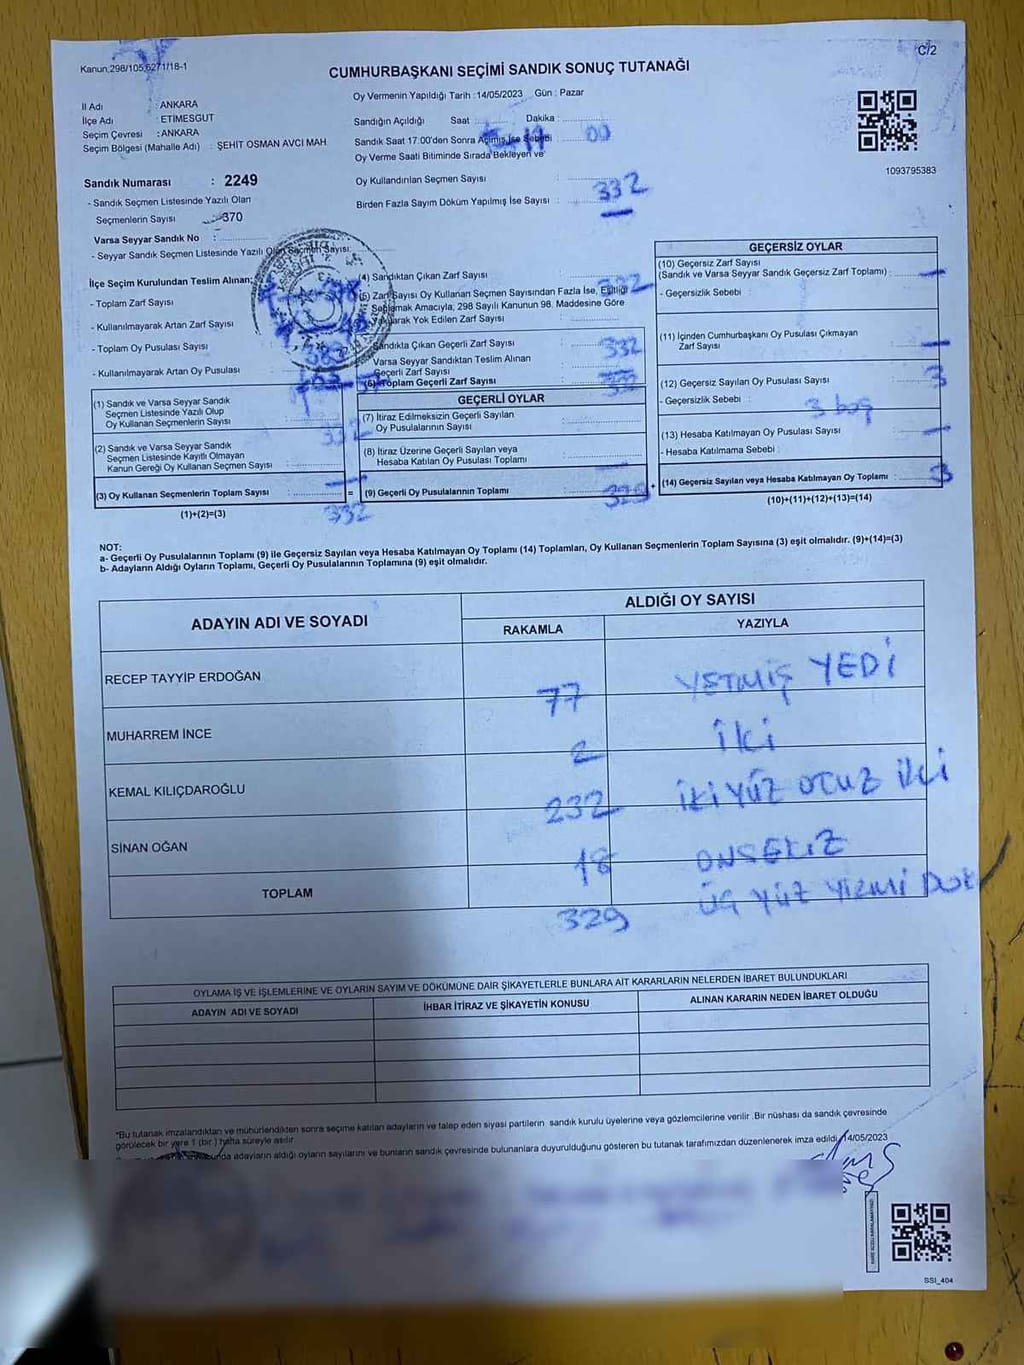 C/2
Kanun:298/105,6271/18-1
CUMHURBAŞKANI SEÇİMİ SANDIK SONUÇ TUTANAĞI
İl Adı : ANKARA
İlçe Adı : ETİMESGUT
Seçim Çevresi : ANKARA
Seçim Bölgesi (Mahalle Adı) : ŞEHİT OSMAN AVCI MAH
Oy Vermenin Yapıldığı Tarih :14/05/2023 Gün : Pazar
Sandığın Açıldığı Saat Dakika :
Sandık Saat 17:00'den Sonra Açılmış İse Sebebi 00
Oy Verme Saati Bitiminde Sırada Bekleyen ve
Oy Kullandırılan Seçmen Sayısı :
Birden Fazla Sayım Döküm Yapılmış İse Sayısı : 332
1093795383
Sandık Numarası : 2249
- Sandık Seçmen Listesinde Yazılı Olan
Seçmenlerin Sayısı 370
Varsa Seyyar Sandık No :
- Seyyar Sandık Seçmen Listesinde Yazılı Olan Seçmen Sayısı:
İlçe Seçim Kurulundan Teslim Alınan;
- Toplam Zarf Sayısı
- Kullanılmayarak Artan Zarf Sayısı
- Toplam Oy Pusulası Sayısı
- Kullanılmayarak Artan Oy Pusulası
(1) Sandık ve Varsa Seyyar Sandık
Seçmen Listesinde Yazılı Olup
Oy Kullanan Seçmenlerin Sayısı 332
(2) Sandık ve Varsa Seyyar Sandık
Seçmen Listesinde Kayıtlı Olmayan
Kanun Gereği Oy Kullanan Seçmen Sayısı
(3) Oy Kullanan Seçmenlerin Toplam Sayısı =
(1)+(2)=(3) 332
(4) Sandıktan Çıkan Zarf Sayısı 332
(5) Zarf Sayısı Oy Kullanan Seçmen Sayısından Fazla İse, Eşitliği
Sağlamak Amacıyla, 298 Sayılı Kanunun 98. Maddesine Göre
Yakılarak Yok Edilen Zarf Sayısı
Sandıkta Çıkan Geçerli Zarf Sayısı 332
Varsa Seyyar Sandıktan Teslim Alınan
Geçerli Zarf Sayısı
(6) Toplam Geçerli Zarf Sayısı 332
GEÇERLİ OYLAR
(7) İtiraz Edilmeksizin Geçerli Sayılan
Oy Pusulalarının Sayısı
(8) İtiraz Üzerine Geçerli Sayılan veya
Hesaba Katılan Oy Pusulası Toplamı
(9) Geçerli Oy Pusulalarının Toplamı 329 +
GEÇERSİZ OYLAR
(10) Geçersiz Zarf Sayısı
(Sandık ve Varsa Seyyar Sandık Geçersiz Zarf Toplamı) : —
- Geçersizlik Sebebi :
(11) İçinden Cumhurbaşkanı Oy Pusulası Çıkmayan
Zarf Sayısı —
(12) Geçersiz Sayılan Oy Pusulası Sayısı 3
- Geçersizlik Sebebi : 3 boş
(13) Hesaba Katılmayan Oy Pusulası Sayısı —
- Hesaba Katılmama Sebebi :
(14) Geçersiz Sayılan veya Hesaba Katılmayan Oy Toplamı : 3
(10)+(11)+(12)+(13)=(14)
NOT:
a- Geçerli Oy Pusulalarının Toplamı (9) ile Geçersiz Sayılan veya Hesaba Katılmayan Oy Toplamı (14) Toplamları, Oy Kullanan Seçmenlerin Toplam Sayısına (3) eşit olmalıdır. (9)+(14)=(3)
b- Adayların Aldığı Oyların Toplamı, Geçerli Oy Pusulalarının Toplamına (9) eşit olmalıdır.
ADAYIN ADI VE SOYADI
ALDIĞI OY SAYISI
RAKAMLA YAZIYLA
RECEP TAYYİP ERDOĞAN 77 YETMİŞ YEDİ
MUHARREM İNCE 2 İKİ
KEMAL KILIÇDAROĞLU 232 İKİ YÜZ OTUZ İKİ
SİNAN OĞAN 18 ONSEKİZ
TOPLAM 329 ÜÇ YÜZ YİRMİ DOK
OYLAMA İŞ VE İŞLEMLERİNE VE OYLARIN SAYIM VE DÖKÜMÜNE DAİR ŞİKAYETLERLE BUNLARA AİT KARARLARIN NELERDEN İBARET BULUNDUKLARI
ADAYIN ADI VE SOYADI İHBAR İTİRAZ VE ŞİKAYETİN KONUSU ALINAN KARARIN NEDEN İBARET OLDUĞU
*Bu tutanak imzalandıktan ve mühürlendikten sonra seçime katılan adayların ve talep eden siyasi partilerin sandık kurulu üyelerine veya gözlemcilerine verilir. Bir nüshası da sandık çevresinde
görülecek bir yere 1 (bir ) hafta süreyle asılır
adayların aldığı oyların sayılarını ve bunların sandık çevresinde bulunanlara duyurulduğunu gösteren bu tutanak tarafımızdan düzenlenerek imza edildi. 14/05/2023
SSI_404